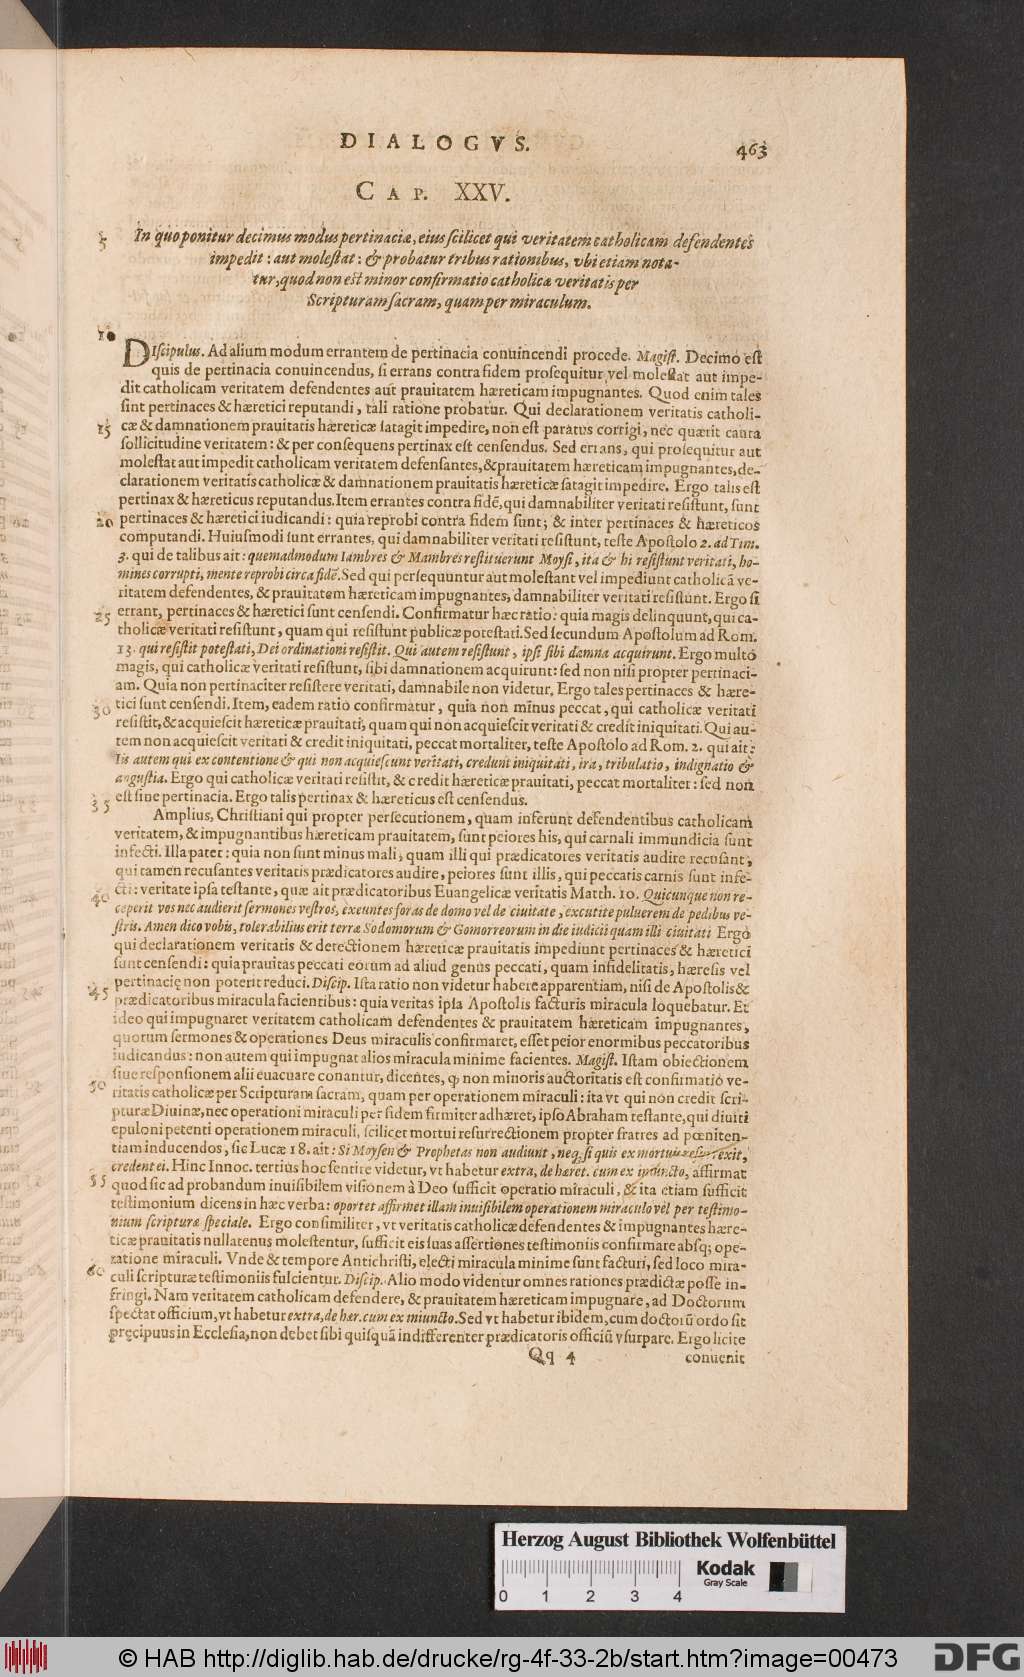 DIALOGVS. 463
CAP. XXV.
5 In quo ponitur decimus modus pertinaciæ, eius scilicet qui veritatem catholicam defendentes
impedit: aut molestat: & probatur tribus rationibus, vbi etiam nota-
tur, quod non est minor confirmatio catholicæ veritatis per
Scripturam sacram, quam per miraculum.
10
DIscipulus. Ad alium modum errantem de pertinacia conuincendi procede. Magist. Decimo est
quis de pertinacia conuincendus, si errans contra fidem prosequitur vel molestat aut impe-
dit catholicam veritatem defendentes aut prauitatem hæreticam impugnantes. Quod enim tales
sint pertinaces & hæretici reputandi, tali ratione probatur. Qui declarationem veritatis catholi-
15 cæ & damnationem prauitatis hæreticæ satagit impedire, non est paratus corrigi, nec quærit cauta
sollicitudine veritatem: & per consequens pertinax est censendus. Sed errans, qui prosequitur aut
molestat aut impedit catholicam veritatem defensantes, & prauitatem hæreticam impugnantes, de-
clarationem veritatis catholicæ & damnationem prauitatis hæreticæ satagit impedire. Ergo talis est
pertinax & hæreticus reputandus. Item errantes contra fidē, qui damnabiliter veritati resistunt, sunt
20 pertinaces & hæretici iudicandi: quia reprobi contra fidem sunt; & inter pertinaces & hæreticos
computandi. Huiusmodi sunt errantes, qui damnabiliter veritati resistunt, teste Apostolo 2. ad Tim.
3. qui de talibus ait: quemadmodum Iambres & Mambres restituerunt Moysi, ita & hi resistunt veritati, ho-
mines corrupti, mente reprobi circa fidē. Sed qui persequuntur aut molestant vel impediunt catholicā ve-
ritatem defendentes, & prauitatem hæreticam impugnantes, damnabiliter veritati resistunt. Ergo si
25 errant, pertinaces & hæretici sunt censendi. Confirmatur hæc ratio: quia magis delinquunt, qui ca-
tholicæ veritati resistunt, quam qui resistunt publicæ potestati. Sed secundum Apostolum ad Rom.
13. qui resistit potestati, Dei ordinationi resistit. Qui autem resistunt, ipsi sibi damna acquirunt. Ergo multo
magis, qui catholicæ veritati resistunt, sibi damnationem acquirunt: sed non nisi propter pertinaci-
am. Quia non pertinaciter resistere veritati, damnabile non videtur, Ergo tales pertinaces & hære-
30 tici sunt censendi. Item, eadem ratio confirmatur, quia non minus peccat, qui catholicæ veritati
resistit, & acquiescit hæreticæ prauitati, quam qui non acquiescit veritati & credit iniquitati. Qui au-
tem non acquiescit veritati & credit iniquitati, peccat mortaliter, teste Apostolo ad Rom. 2. qui ait:
Iis autem qui ex contentione & qui non acquiescunt veritati, credunt iniquitati, ira, tribulatio, indignatio &
angustia. Ergo qui catholicæ veritati resistit, & credit hæreticæ prauitati, peccat mortaliter: sed non
35 est sine pertinacia. Ergo talis pertinax & hæreticus est censendus.
Amplius, Christiani qui propter persecutionem, quam inferunt defendentibus catholicam
veritatem, & impugnantibus hæreticam prauitatem, sunt peiores his, qui carnali immundicia sunt
infecti. Illa patet: quia non sunt minus mali, quam illi qui prædicatores veritatis audire recusant,
qui tamen recusantes veritatis prædicatores audire, peiores sunt illis, qui peccatis carnis sunt infe-
40 cti: veritate ipsa testante, quæ ait prædicatoribus Euangelicæ veritatis Matth. 10. Quicunque non re-
ceperit vos nec audierit sermones vestros, exeuntes foras de domo vel de ciuitate, excutite puluerem de pedibus ve-
stris. Amen dico vobis, tolerabilius erit terræ Sodomorum & Gomorreorum in die iudicii quam illi ciuitati Ergo
qui declarationem veritatis & detectionem hæreticæ prauitatis impediunt pertinaces & hæretici
sunt censendi: quia prauitas peccati eorum ad aliud genus peccati, quam infidelitatis, hæresis vel
45 pertinacię non poterit reduci. Discip. Ista ratio non videtur habere apparentiam, nisi de Apostolis &
prædicatoribus miracula facientibus: quia veritas ipsa Apostolis facturis miracula loquebatur. Et
ideo qui impugnaret veritatem catholicam defendentes & prauitatem hæreticam impugnantes,
quorum sermones & operationes Deus miraculis confirmaret, esset peior enormibus peccatoribus
iudicandus: non autem qui impugnat alios miracula minime facientes. Magist. Istam obiectionem
50 siue responsionem alii euacuare conantur, dicentes, q̨ non minoris auctoritatis est confirmatio ve-
ritatis catholicæ per Scripturam sacram, quam per operationem miraculi: ita vt qui non credit scri-
pturæ Diuinæ, nec operationi miraculi per fidem firmiter adhæret, ipso Abraham testante, qui diuiti
epuloni petenti operationem miraculi, scilicet mortui resurrectionem propter fratres ad pœniten-
tiam inducendos, sic Lucæ 18. ait: Si Moysen & Prophetas non audiunt, neq; si quis ex mortuis resurrexit,
credent ei. Hinc Innoc. tertius hoc sentire videtur, vt habetur extra, de hæret. cum ex iniuncto, affirmat
55 quod sic ad probandum inuisibilem visionem à Deo sufficit operatio miraculi, & ita etiam sufficit
testimonium dicens in hæc verba: oportet affirmet illam inuisibilem operationem miraculo vel per testimo-
nium scripturæ speciale. Ergo consimiliter, vt veritatis catholicæ defendentes & impugnantes hære-
ticæ prauitatis nullatenus molestentur, sufficit eis suas assertiones testimoniis confirmare absq; ope-
ratione miraculi. Vnde & tempore Antichristi, electi miracula minime sunt facturi, sed loco mira-
60 culi scripturæ testimoniis fulcientur. Discip. Alio modo videntur omnes rationes prædictæ posse in-
fringi. Nam veritatem catholicam defendere, & prauitatem hæreticam impugnare, ad Doctorum
spectat officium, vt habetur extra, de hær. cum ex miuncto. Sed vt habetur ibidem, cum doctorū ordo sit
pręcipuus in Ecclesia, non debet sibi quisquā indifferenter prædicatoris officiū vsurpare. Ergo licite
Qq 4 conuenit
Herzog August Bibliothek Wolfenbüttel
Kodak
Gray Scale
0 1 2 3 4
© HAB http://diglib.hab.de/drucke/rg-4f-33-2b/start.htm?image=00473
DFG